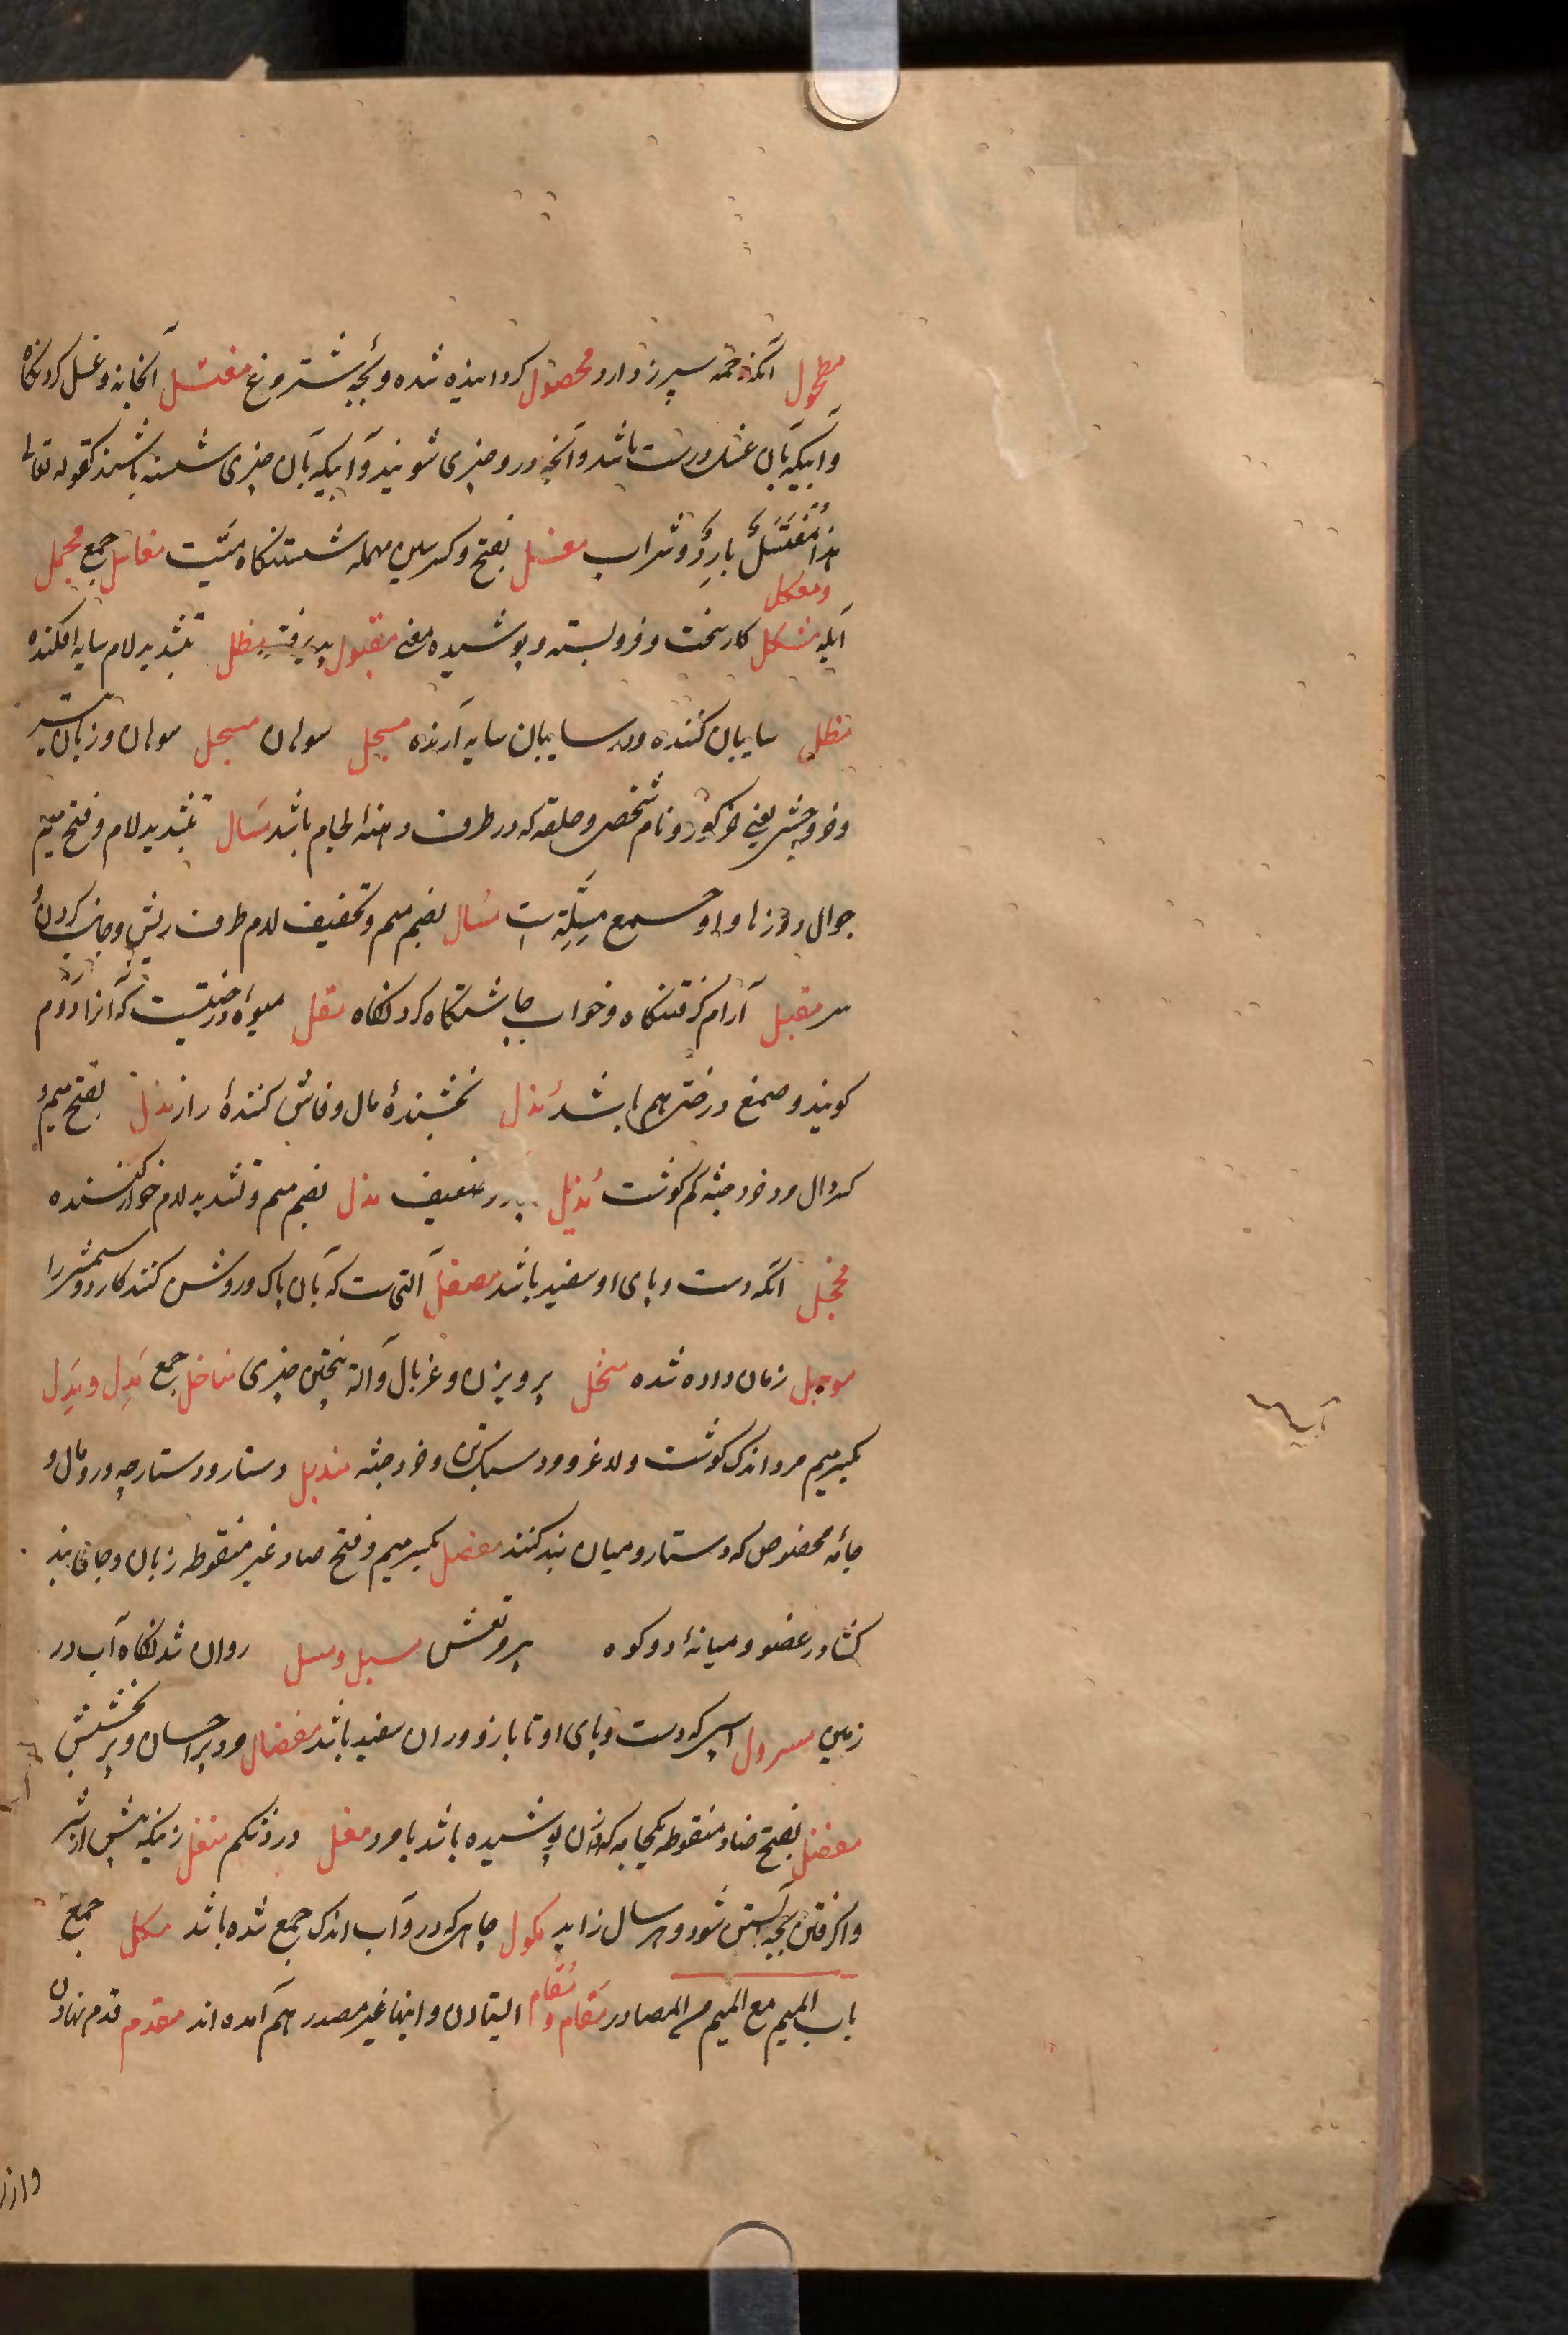 مطحول آنکه زحمه سپرز دارد محصول کردانیده شده و بچه شتر و غ مغتسل آبخانه و غسل کردنکاه
و آبیکه بان غسل درست باشد و آنچه درو چیزی شویند و آبیکه بان چیزی شسته باشند کقوله تعالی
هذا مُغْتَسَلٌ بارِدٌ و شراب مغسل بفتح و کسر سین مهمله شستنکاه میّت مغاسل جمع مجمل
ومعکل
آبله مشکل کار سخت و فروبسته و پوشیده معنی مقبول پذیرفته مظل بتشدید لام سایه افکننده
مظل سایبان کننده و سایبان سایه آرنده مسجل سوهان مسحل سوهان و زبان
و خر وحشی یعنی خر کور و نام شخصی و حلقه که در طرف دهنهٔ لجام باشد مَسَال بتشدید لام و فتح میم
جوال دوزها و او جمع مِسَلّة است مُسَال بضم میم و تخفیف لام طرف ریش و جانب کردن
سر مقیل آرام کرفتنکاه و خواب چاشتکاه کردنکاه مقل میوهٔ درختیست که آنرا دوم
کویند و صمغ درختی هم باشد مُذل بخشندهٔ مال و فاش کنندهٔ راز مذل بفتح میم و
کسر دال مرد خرد جثه کم کوشت مُذیل ضعیف مذل بضم میم و تشدید لام خوار کننده
محجل آنکه دست و پای او سفید باشد مصقل آلتی ست که بان پاک و روشن کنند کارد و شمشیر را
موجل زمان داده شده منخل پرویزن و غربال و آلة بیختن چیزی مناخل جمع مَدِل و بَدِل
بکسر میم مرد اندک کوشت و لاغر و مرد سبک تن و خرد جثه مندیل دستار و دستارچه و رومال و
جامهٔ مخصوص که دستار و میان بند کنند مفصل بکسر میم و فتح صاد غیر منقوطه زبان و جای بند
کشاد در عضو و میانهٔ دو کوه پر و تعش مسیل و مسل روان شدنکاه آب در
زمین مسرول اسپی که دست و پای او تا بازو و ران سفید باشد مفضال مرد پر احسان و پر بخشش
مفضل بفتح ضاد منقوطه یکجامه که زن پوشیده باشد یا مرد مغل درد شکم مغل زنیکه پیش از شیر
واکرفتن بچه آبستن شود و هر سال زاید مکول چاهی که درو آب اندک جمع شده باشد مکل جمع
باب المیم مع المیم من المصادر مَقام و مُقام ایستادن و اینها غیر مصدر هم آمده اند مقدم قدم نهادن
وازر